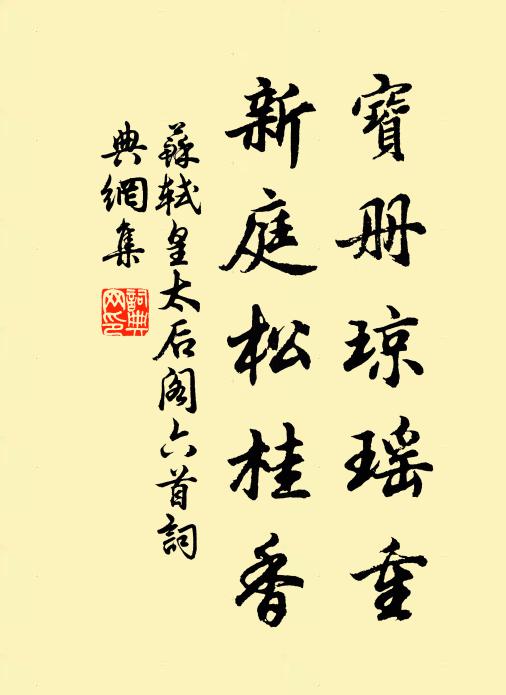 寶册琼瑶重
新庭松桂香
蘇軾皇太后阁六首詞
典網集
詞典网印